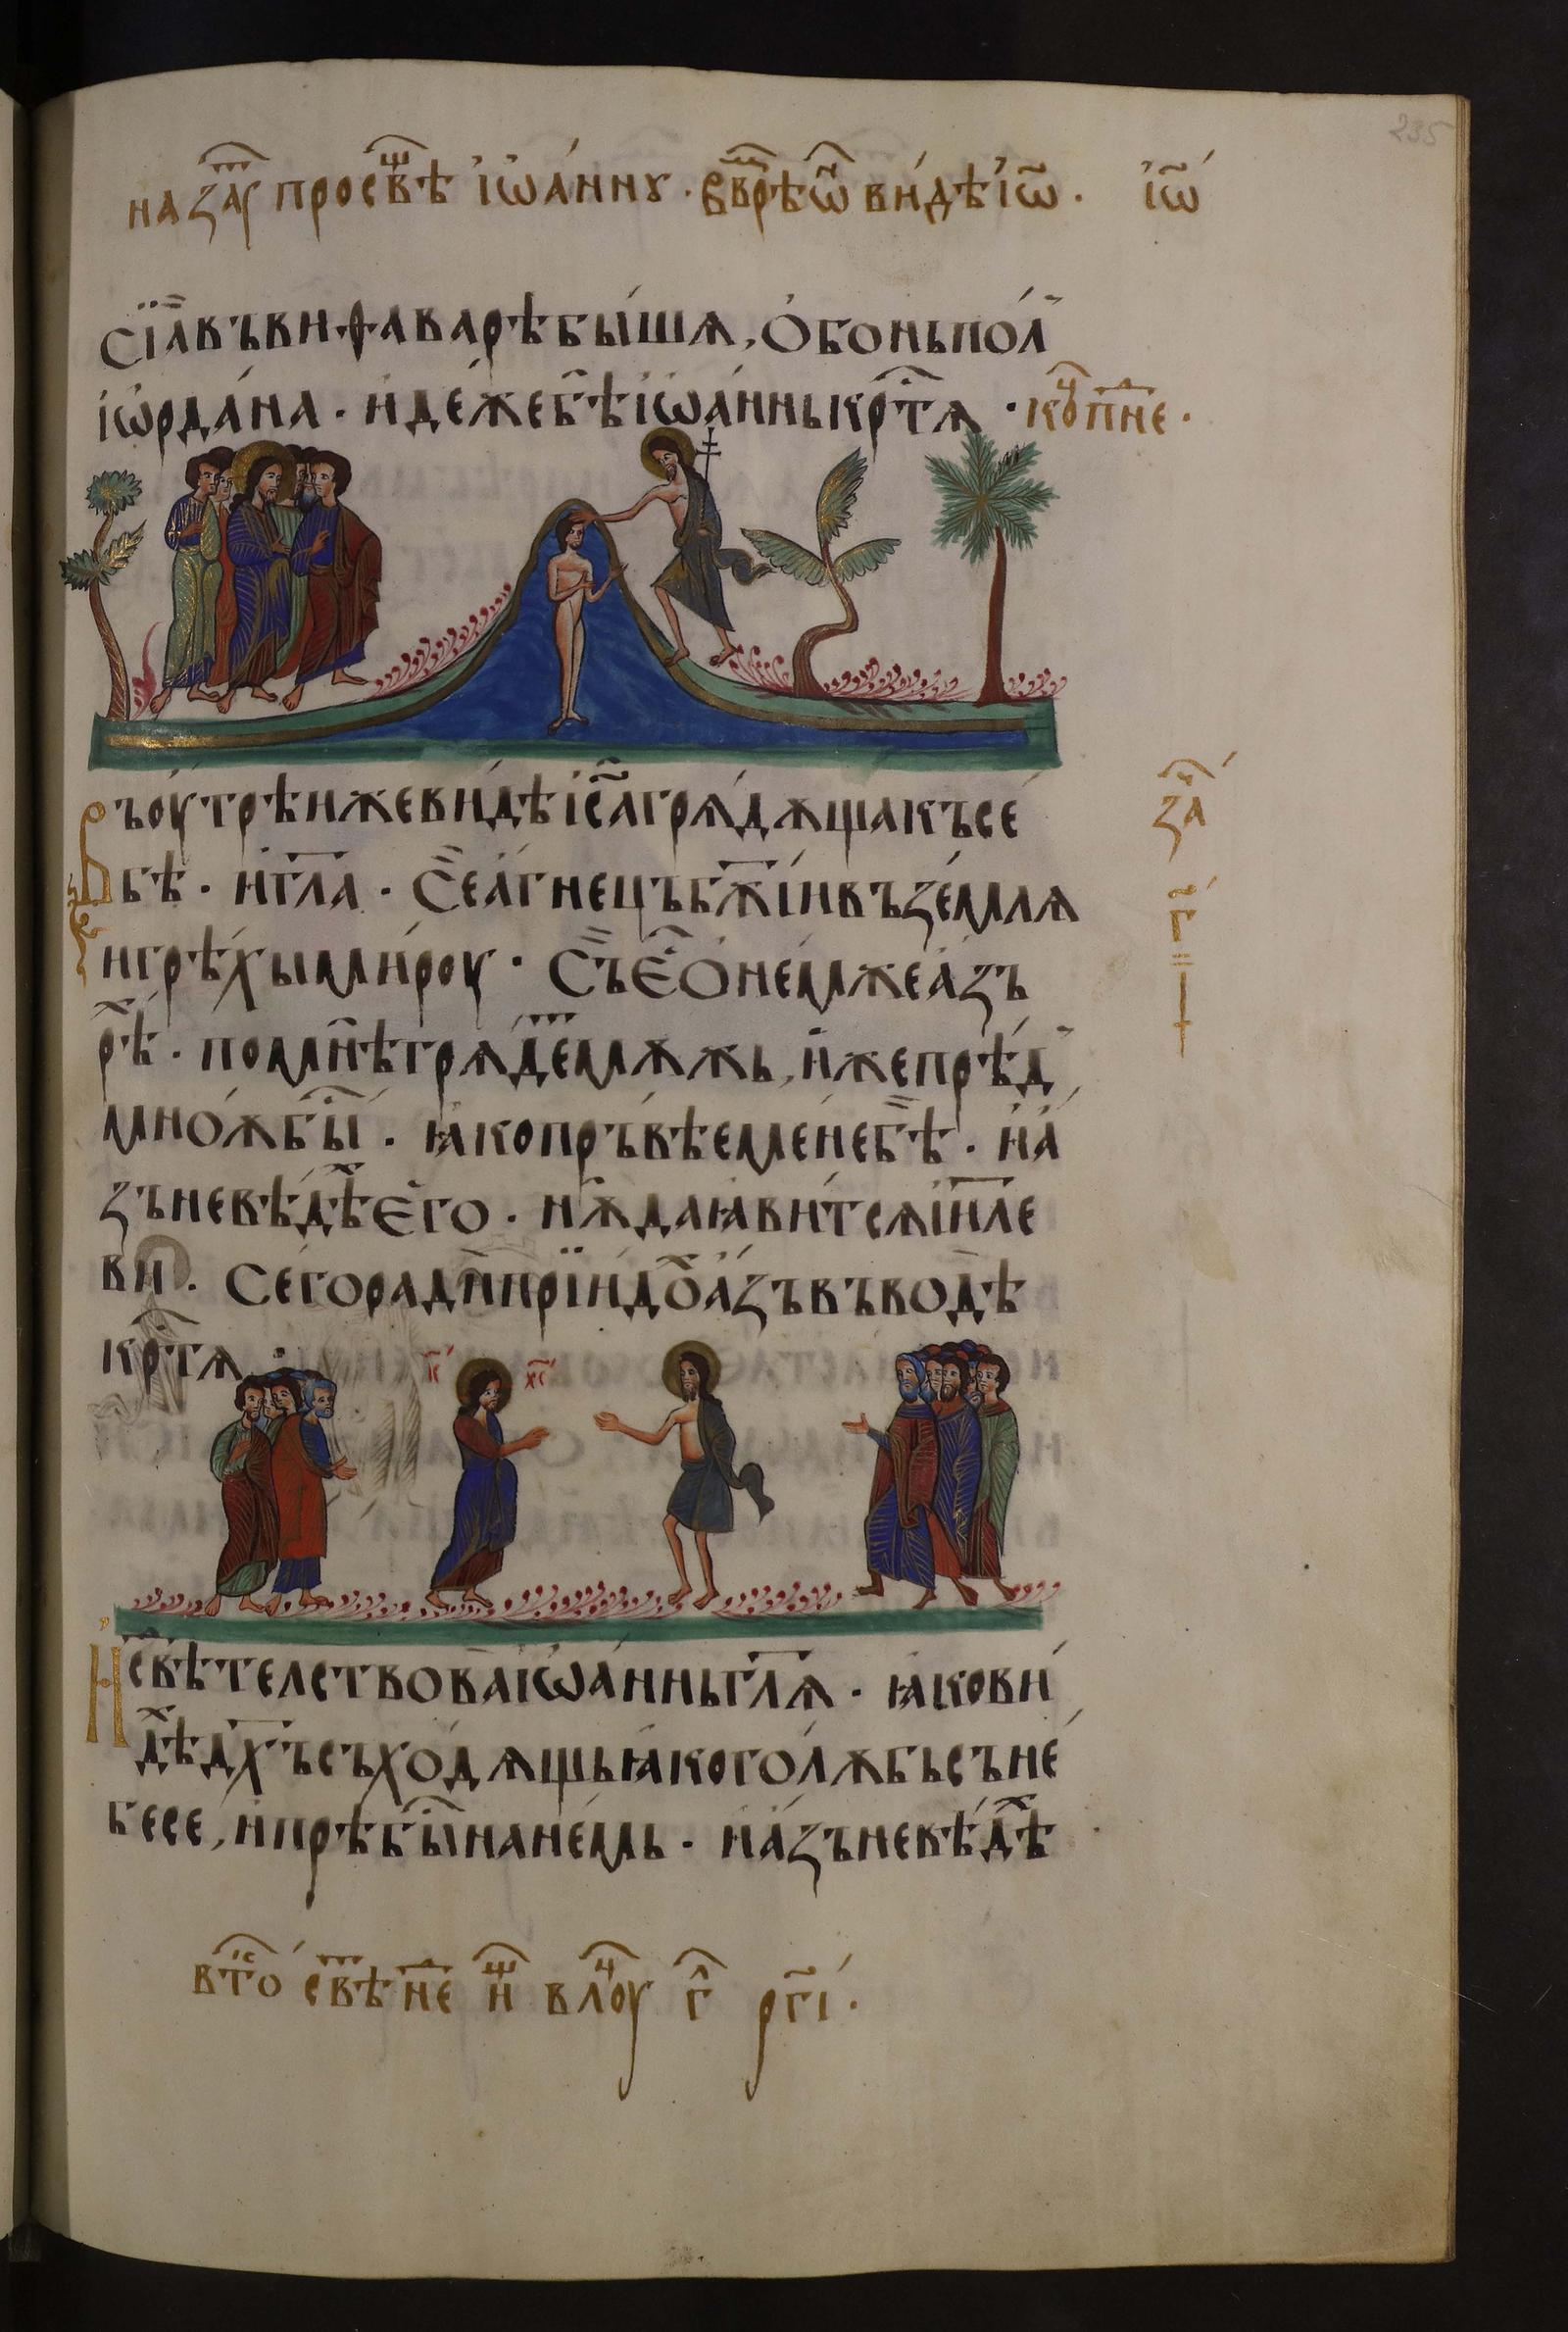 на заⷱ҇ просвѣⷳ҇ їѡа́ннꙋ · въ врѣⷨ҇ ѡ҆́н видѣ їѡ҃ · їѡ҃
Сїа̀ въ виѳаварѣ бы́шѧ, ѻбонь пол
іѡрда́на · идѣже бѣ̑ іѡа́ннь крⷭ҇тѧ · коⷰ҇ пⷩ҇не ·
Въ оутрѣи же ви́дѣ іс҃а грѧ́дѫща къ се
бѣ · и гл҃а · Се а́гнець бж҃іи въземлѧ
и грѣхы ми́роу · Съ еⷭ҇ ѻ немже а́зъ
рѣ́х · по мнѣ грѧде́т мѫжь, иже прѣ́д
мноѫ бы́ⷭ҇ · ꙗко пръвѣе ме́не бѣ · и а́
зъ не вѣ́дѣⷯ его · нѫ да ꙗви́тсѧ іи҃ле
ви · Сего ради прїидоⷯ а́зъ въ водѣ
крⷭ҇тѧ :
іс҃ хс҃
заⷱ҇
г҃
И свѣⷣтелствова іѡа́ннь гл҃ѧ · ꙗко ви́
дѣⷯ дх҃ъ съходѧщь ꙗко го́лѫбь съ не́
бесе, и прѣбыⷭ҇ на не́мь · и а́зъ не вѣ́дѣⷯ
вⷮ҇о свⷮ҇ѣ не н влоуⷱ҇ г҃ рг҃і ·
235